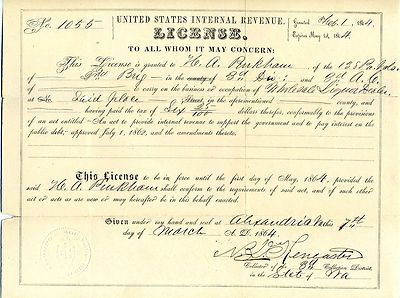 No. 1055
UNITED STATES INTERNAL REVENUE.
Granted Feb. 1, 1864.
Expires May 1st, 1864
LICENSE.
TO ALL WHOM IT MAY CONCERN:
This License is granted to H. A. Pinkham of the 125 Pa. Vols.
of Brig in the county of 3d Div: and 2d A. C.
to carry on the business or occupation of Wholesale Liquor Dealer
at No. Said place Street, in the aforementioned county, and
having paid the tax of Six 25/100 dollars therefor, conformably to the provisions
of an act entitled "An act to provide internal revenue to support the government and to pay interest on the
public debt," approved July 1, 1862, and the amendments thereto.
This License to be in force until the first day of May, 1864, provided the
said H. A. Pinkham shall conform to the requirements of said act, and of such other
act or acts as are now or may hereafter be in this behalf enacted.
Given under my hand and seal at Alexandria this 7th
day of March A. D. 1864.
Collector of the 3d Collection District,
in the State of Va